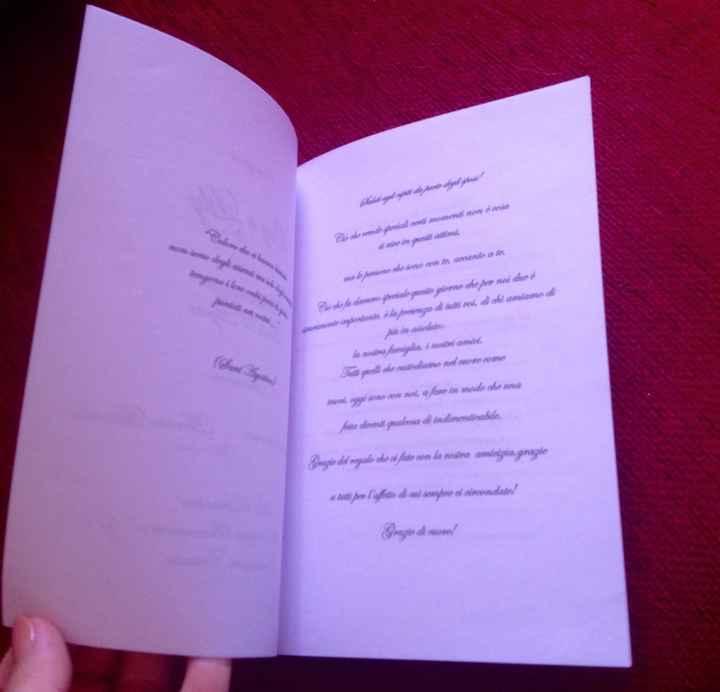 "Coloro che ci hanno
non sono degli assenti ma solo degli
tengono i loro occhi pieni di
puntati nei nostri..."
(Sant' Agostino)
Saluti agli ospiti da parte degli sposi!
Ciò che rende speciali certi momenti non è cosa
si vive in questi attimi,
ma le persone che sono con te, accanto a te.
Ciò che fa davvero speciale questo giorno che per noi due è
importante, è la presenza di tutti voi, di chi amiamo di
più in assoluto:
la nostra famiglia, i nostri amici.
Tutti quelli che custodiamo nel cuore come
tesori, oggi sono con noi, a fare in modo che una
festa diventi qualcosa di indimenticabile.
Grazie del regalo che ci fate con la vostra amicizia,grazie
a tutti per l'affetto di cui sempre ci circondate!
Grazie di cuore!